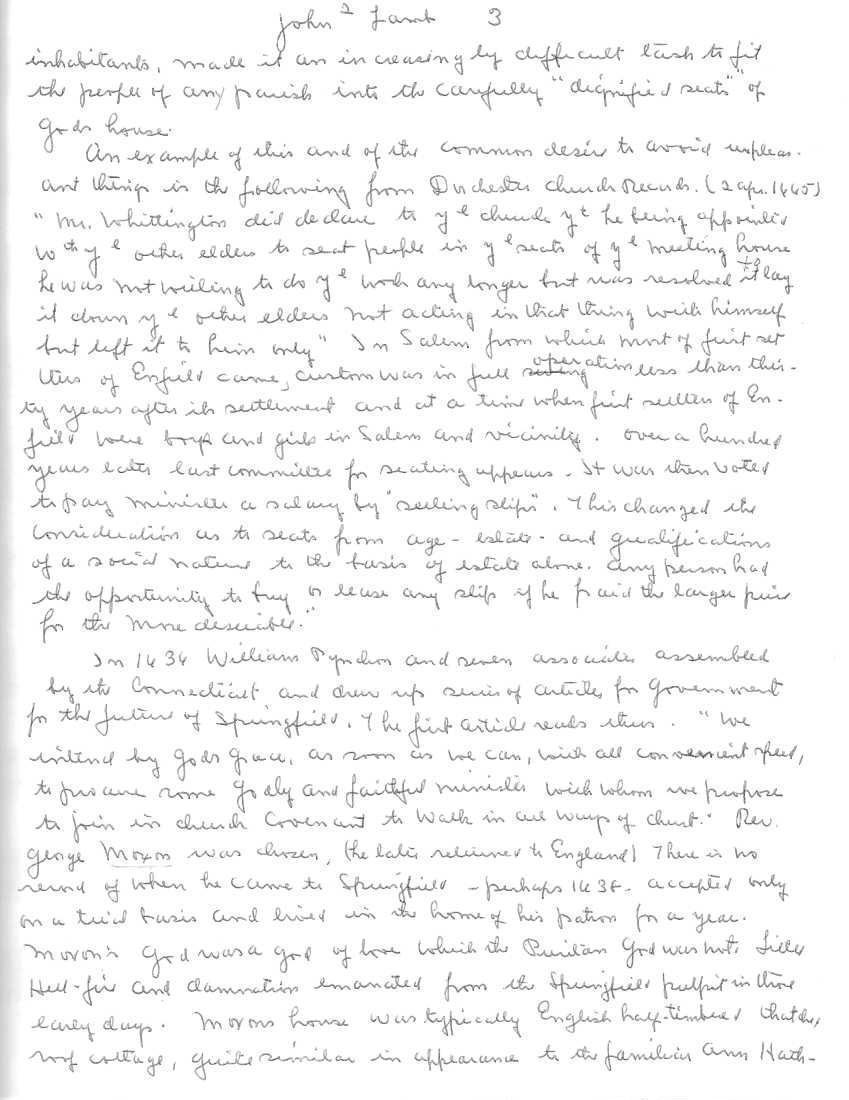 John 2 Lamb 3
inhabitants, made it an increasingly difficult task to fit
the people of any parish into the carefully "dignified seats" of
gods house.
An example of this and of the common desire to avoid unpleas-
ant things is the following from Dorchester Church Records. (2 apr. 1645)
"Mr. Whittington did declare to ye church yt he being appointed
wth ye other elders to seat people in ye seats of ye meeting house
he was not willing to do ye work any longer but was resolved to lay
it down ye other elders not acting in that thing with himself
but left it to him only" In Salem from which most of first set
tlers of Enfield came, custom was in full operation less than thir-
ty years after its settlement and at a time when first settlers of En-
field were boys and girls in Salem and vicinity. Over a hundred
years later last committee for seating appears. It was then voted
to pay minister a salary by "selling slips". This changed the
consideration as to seats from age - estate - and qualifications
of a social nature to the basis of estate alone. Any person had
the opportunity to buy or lease any slip if he paid the larger price
for the more desirable."
In 1636 William Pynchon and seven associates assembled
by the Connecticut and drew up series of articles for Government
for the future of Springfield. The first article reads thus. "We
intend by Gods grace, as soon as we can, with all convenient speed,
to procure some Godly and faithful minister with whom we propose
to join in church Covenant to walk in all ways of christ." Rev.
George Moxon was chosen, (he later returned to England) There is no
record of when he came to Springfield - perhaps 1638 - accepted only
on a trial basis and lived in the home of his patron for a year.
Moxon's God was a god of love which the Puritan God was not. Little
Hell-fire and damnation emanated from the Springfield pulpit in those
early days. Moxons house was typically English half-timbered thatch,
roof cottage, quite similar in appearance to the familiar Ann Hath-